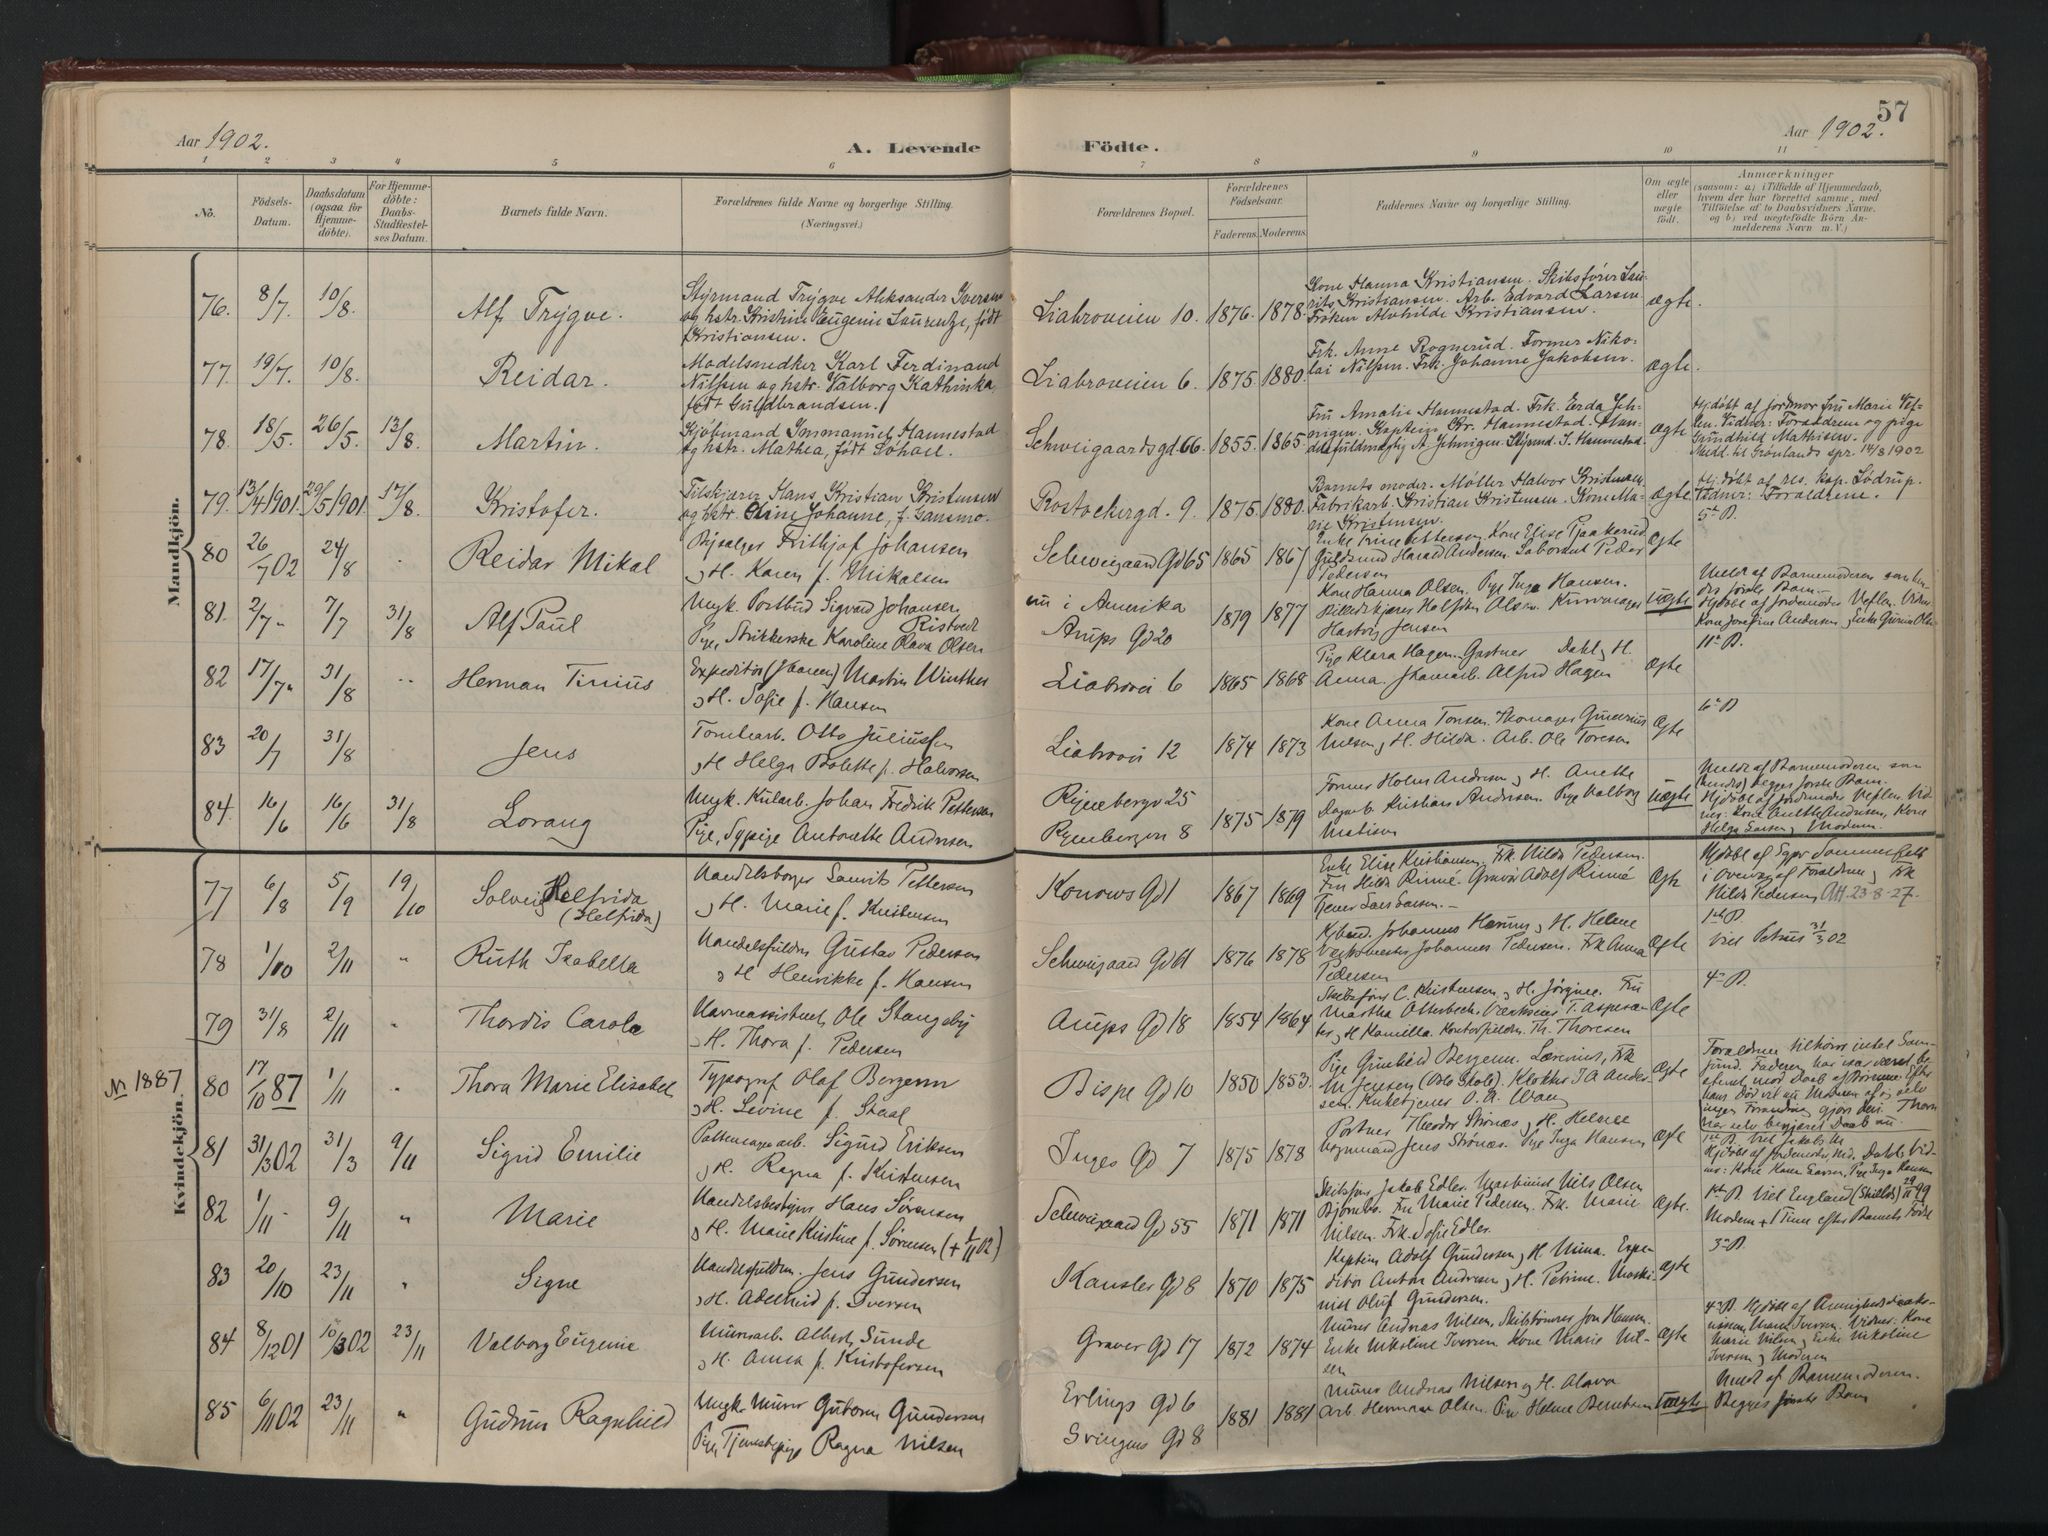 57
Aar 1902.
A. Levende Födte.
Aar 1902.
1 2 3 4 5 6 7 8 9 10 11
No.
Födsels-
Datum.
Daabsdatum
(ogsaa for
Hjemme-
döbte).
For Hjemme-
döbte:
Daabs-
Stadfæstel-
ses Datum.
Barnets fulde Navn.
Forældrenes fulde Navne og borgerlige Stilling.
(Næringsvei.)
Forældrenes Bopæl.
Forældrenes
Födselsaar.
Faderens. Moderens.
Faddernes Navne og borgerlige Stilling.
Om ægte
eller
uægte
födt.
Anmærkninger
(saasom: a.) i Tilfælde af Hjemmedaab,
hvem der har forrettet samme, med
Tilföielse af to Daabsvidners Navne.
og b) ved uægtefödte Börn An-
melderens Navn m. V.)
Mandkjön.
76. 8/7. 10/8. Alf Trygve.
Styrmand Trygve Aleksander Iversen
og hstr. Kristine Eugenie Laurentze, født
Kristiansen.
Liabroveien 10. 1876. 1878.
Kone Hanna Kristiansen. Skibsfører Lau-
rits Kristiansen. Arb. Edvard Larsen.
Frøken Alvhilde Kristiansen.
ægte.
77. 19/7. 10/8. Reidar.
Modelsnedker Karl Ferdinand
Nilssen og hstr. Valborg Kathinka,
født Guldbrandsen.
Liabroveien 6. 1875. 1880.
Frk. Anne Rognerud. Former Niko-
lai Nilssen. Frk. Johanne Jakobsen.
ægte.
78. 18/5. 26/5. 13/8. Martin.
Kjøbmand Immanuel Hannestad
og hstr. Mathea, født Johan
Schweigaardsgd. 66. 1855. 1865.
Fru Amalie Hannestad. Frk. Gerda Jeh-
nigen. Kaptein Chr. Hannestad. Han-
delsfuldmægtig A. Jehnigen Styrmd. S. Hannestad.
ægte
Hj.døbt af jordmor fru Marie Vef-
len. Vidner: Forældrene og pige
Gundhild Mathisen.
Medd. til Grønlands spr. 14/8 1902
79. 13/4 1901. 29/5 1901. 17/8. Kristofer.
Tilskjærer Hans Kristian Kristensen
og hstr. Stine Johanne, f. Gansmo.
Rostockergd. 9. 1875. 1880.
Barnets moder. Møller Halvor Kristiansen.
Fabrikarb. Kristian Kristensen. Kone Ma-
rie Kristensen.
ægte
Hj.døbt af res. kap. Lødrup.
Vidner: Forældrene.
5te B.
80 26/7 02 24/8 Reidar Mikal
Bysælger Frithjof Johansen
og H. Karen f. Mikalsen
Schweigaard Gd 65 1865 1867
Enke Trine Pettersen. Kone Elise Tjaakerud
Guldsmed Harald Andersen. Laborant Peder
Pedersen
ægte
81. 2/7 " 7/7 31/8 Alf Paul
Ungk. Postbud Sigvard Johansen
Ristvedt
Pige, Strikkerske Karoline Olava Olsen
nu i Amerika
Arups Gd 20 1879 1877
Kone Hanna Olsen. Pige Inga Hansen.
Billedskjærer Halfdan Olsen. Kurvmager
Hartvig Jensen
uægte
Meldt af Barnemoderen som hen-
des første Barn.
Hjdøbt af Jordemoder Veflen. Vidner.
Kone Josefine Andersen, Enke Gunia Ols-
82 17/7 " 31/8 " Herman Tinius
Expeditør Martin Winther
og H. Sofie f. Hansen
Liabrovei 6 1865 1868
Pige Klara Hagen. Gartner Dahl og H.
Anna. Alfred Hagen
ægte
11te B.
83 20/7 31/8 Jens
Tomtearb. Otto Juliussen
og H. Helga Bolette f. Halvorsen
Liabrovei 12 1874 1873
Kone Anna Tonsen. Gunerius
Nilsen og H. Hilda. Arb. Ole Toresen
ægte
6te B
84. 16/6 16/6 31/8 Lorang
Ungk. Kularb. Johan Fredrik Pettersen
Pige, Sypige Antonette Andresen
Ryenbergv 25
Ryenbergvn 8 1875 1879
Former Holm Andresen og H. Anette
Dagarb. Kristian Andersen. Pige Valborg
Matisen
uægte
Meldt af Barnemoderen som
(hendes) begges første Barn.
Hjdøbt af Jordemoder Veflen. Vid-
ner: Kone Anette Andresen, Kone
Helga Larsen og Moderen.
Kvindekjön.
77 6/8 5/9 19/10 Solveig Helfrida
(Helfrida)
Handelsborger Laurits Pettersen
og H. Marie f. Kristensen
Konows Gd 1 1867 1869
Enke Elise Kristiansen. Frk. Hilda Pedersen.
Fru Hilda Rinné. Gravør Adolf Rinné
Tjener Lars Larsen.
ægte
Hjdøbt af Sommerfelt
i Overvær af Forældrene og Frk
Hilda Pedersen Att. 23-8-27.
78 1/10 2/11 " Ruth Isabella
Handelsfuldm. Gustav Pedersen
og H. Henrikke f. Hansen
Schweigaard Gd 61 1876 1878
Kjbmd. Johannes Hæruns og H. Helene
Værkmester Johannes Pedersen. Frk Anna
Pedersen
ægte
1ste B.
Viet Petrus 31/3 02
79 31/8 2/11 " Thordis Carola
Havneassistent Ole Stangeby
og H. Thora f. Pedersen
Arups Gd 18 1854 1864
Skibsførs C. Kristensen og H. Jørgine. Fru
Martha Otterbech. Værkseier T. Aspesæ-
ter og H. Kamilla. Kontorfuldm. Th. Thoresen
ægte
4de B.
No 1887.
80 17/10 87 1/11 " Thora Marie Elisabet
Typograf Olaf Bergenn
og H. Levine f. Staal
Bispe Gd 10 1850 1853.
Pige Gunhild Bergenn. Lærerinde, Frk
M. Jensen (Oslo Skole). Klokker J A Ander-
sen. Kirketjener O. A. Wang
ægte
Forældrene tilhører intet Sam-
fund. Faderen har især været be-
stemt mod Daab af Børnene. Efter
hans Død vil nu Moderen af sig selv
ingen Forandring gjøre deri. Thora
har selv begjæret Daab nu.
81 31/3 02 31/3 9/11 Sigrid Emilie
Pottemagerarb. Sigurd Eriksen
og H. Ragna f. Kristensen
Inges Gd 7 1875 1878
Portner Theodor Strønæs og H. Helene
Vognmand Jens Strønæs. Pige Inga Hansen
ægte
1ste B. Viet Jakobs K.
Hjdøbt af Jordemoder, Ned. Dahl. Vid-
ner: Kone Karen Larsen, Pige Inga Hansen
82 1/11 - 9/11 " Marie
Handelsbestyrer Hans Sørensen
og H. Marie Kristine f. Sørensen (+ 1/11 02)
Schweigaard Gd 55 1871 1871
Skibsførs Jakob Edler. Maskinist Nils Olsen
Bjørneb. Fru Marie Pedersen. Frk. Marie
Nilsen. Frk. Sofie Edler.
ægte.
1ste B. Viet England (Shields) 29/11 99
Moderen + 1 Time efter Barnets Fødsel
83 20/10 23/11 " Signe
Handelsfuldm. Jens Gundersen
og H. Adelheid f. Iversen
Kansler Gd 8 1870 1875
Kaptein Adolf Gundersen og H. Mina. Expe-
ditør Anton Andresen og H. Petrine. Maski-
nist Oluf Gundersen.
ægte
3die B.
84 8/12 01 10/3 02 23/11 Valborg Eugenie
Murerarb. Albert Sunde
og H. Anna f. Kristofersen
Graver Gd 17 1872 1874
Murer Andreas Nilsen. Skibstømrer Jon Hansen.
Enke Nikoline Iversen. Kone Marie Nil-
sen
ægte
4de B. Hjdøbt af Menighedsdiako-
nissen Maren Iversen. Vidner: Kone
Marie Nilsen og Enke Nikoline
Iversen og Moderen
85 6/11 02 23/11 " Gudrun Ragnhild
Ungk. Murer Guttorm Gundersen
Pige, Tjenestepige Ragna Nilsen
Erlings Gd 6
Svingens Gd 8 1881 1881
Murer Andreas Nilsen og H. Olava
Arb. Herman Olsen. Pige Helene Berntsen
uægte
Meldt af Barnemoderen.
Begges første Barn